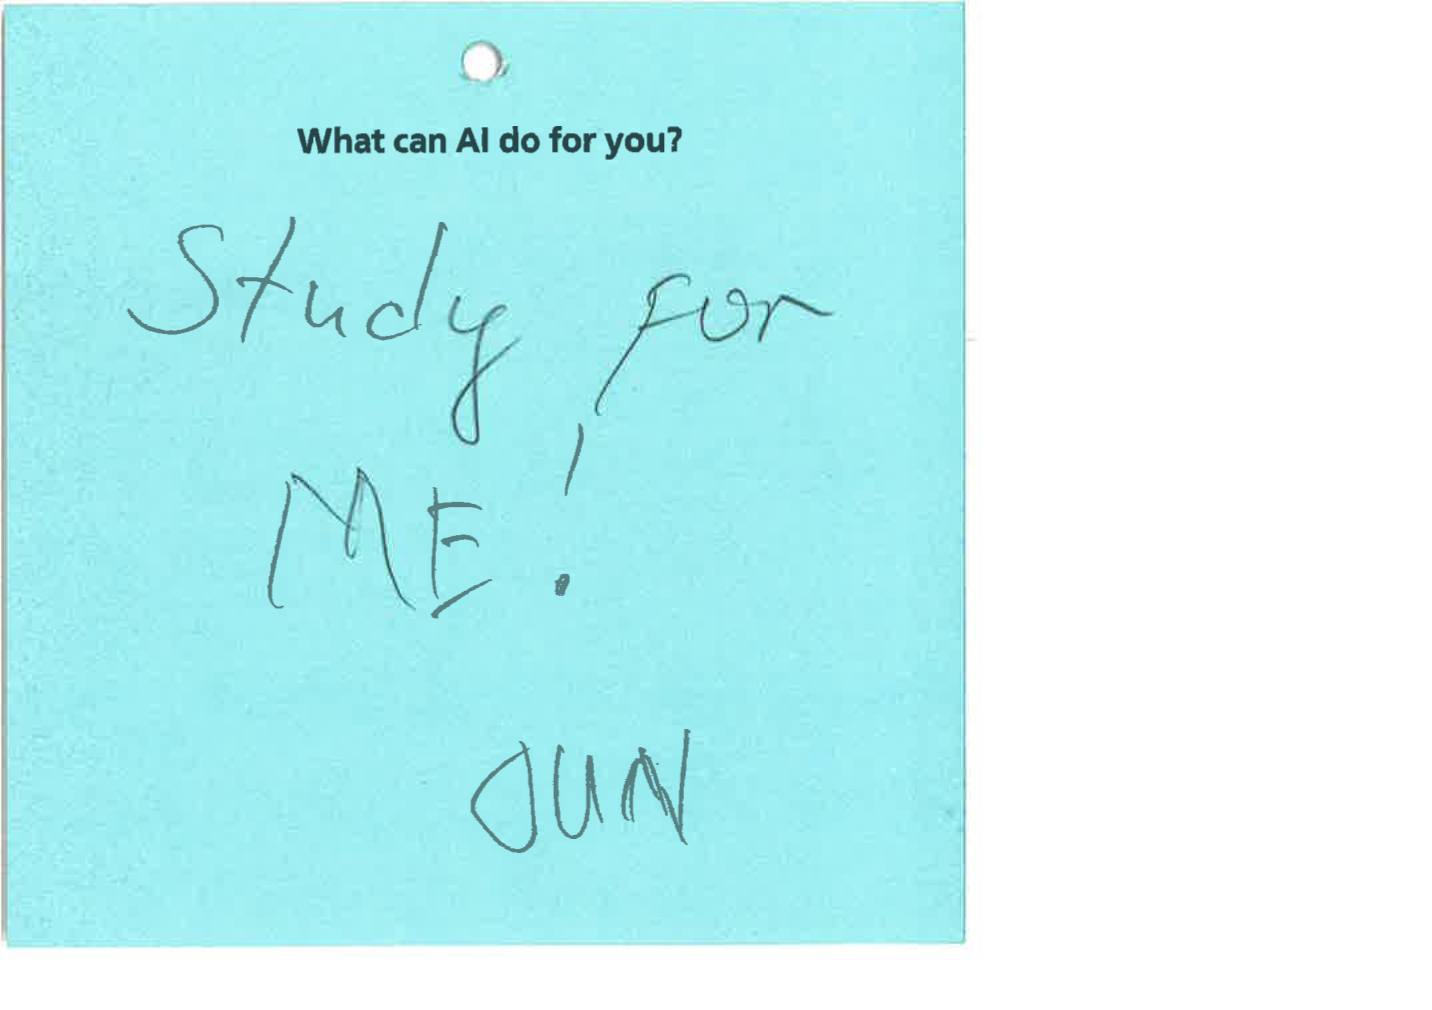 What can AI do for you?
Study for
ME!
JUN